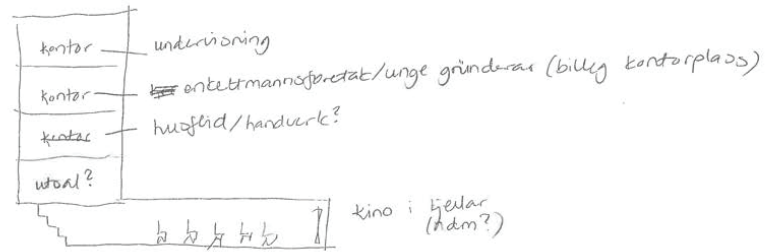 kontor undervisning
kontor enkeltmannsforetak/unge gründerar (billeg kontorplass)
kontor husflid/handverk?
utsal?
kino i kjellar